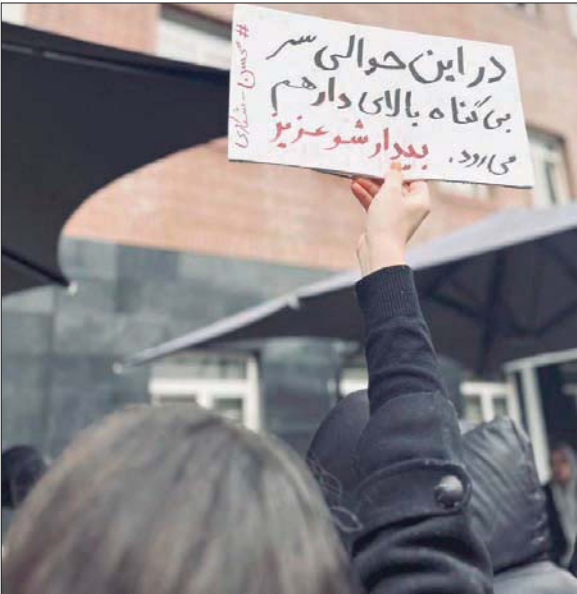 در این حوالی سر
بی گناه بالای دار هم
می رود. بیدار شو عزیز
#محسن_شکاری